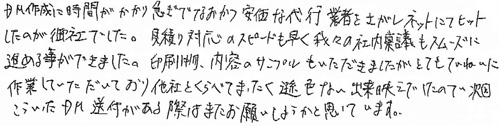 DM作成に時間がかかり急ぎでなおかつ安価な代行業者をさがしネットにてヒット
したのが御社でした。見積り対応のスピードも早く我々の社内稟議もスムーズに
進める事ができました。印刷判、内容のサンプルもいただきましたがとてもていねいに
作業していただいており他社とくらべてまったく遜色ない出来映えでしたので次回
こういったDM送付がある際はまたお願いしようかと思ています。